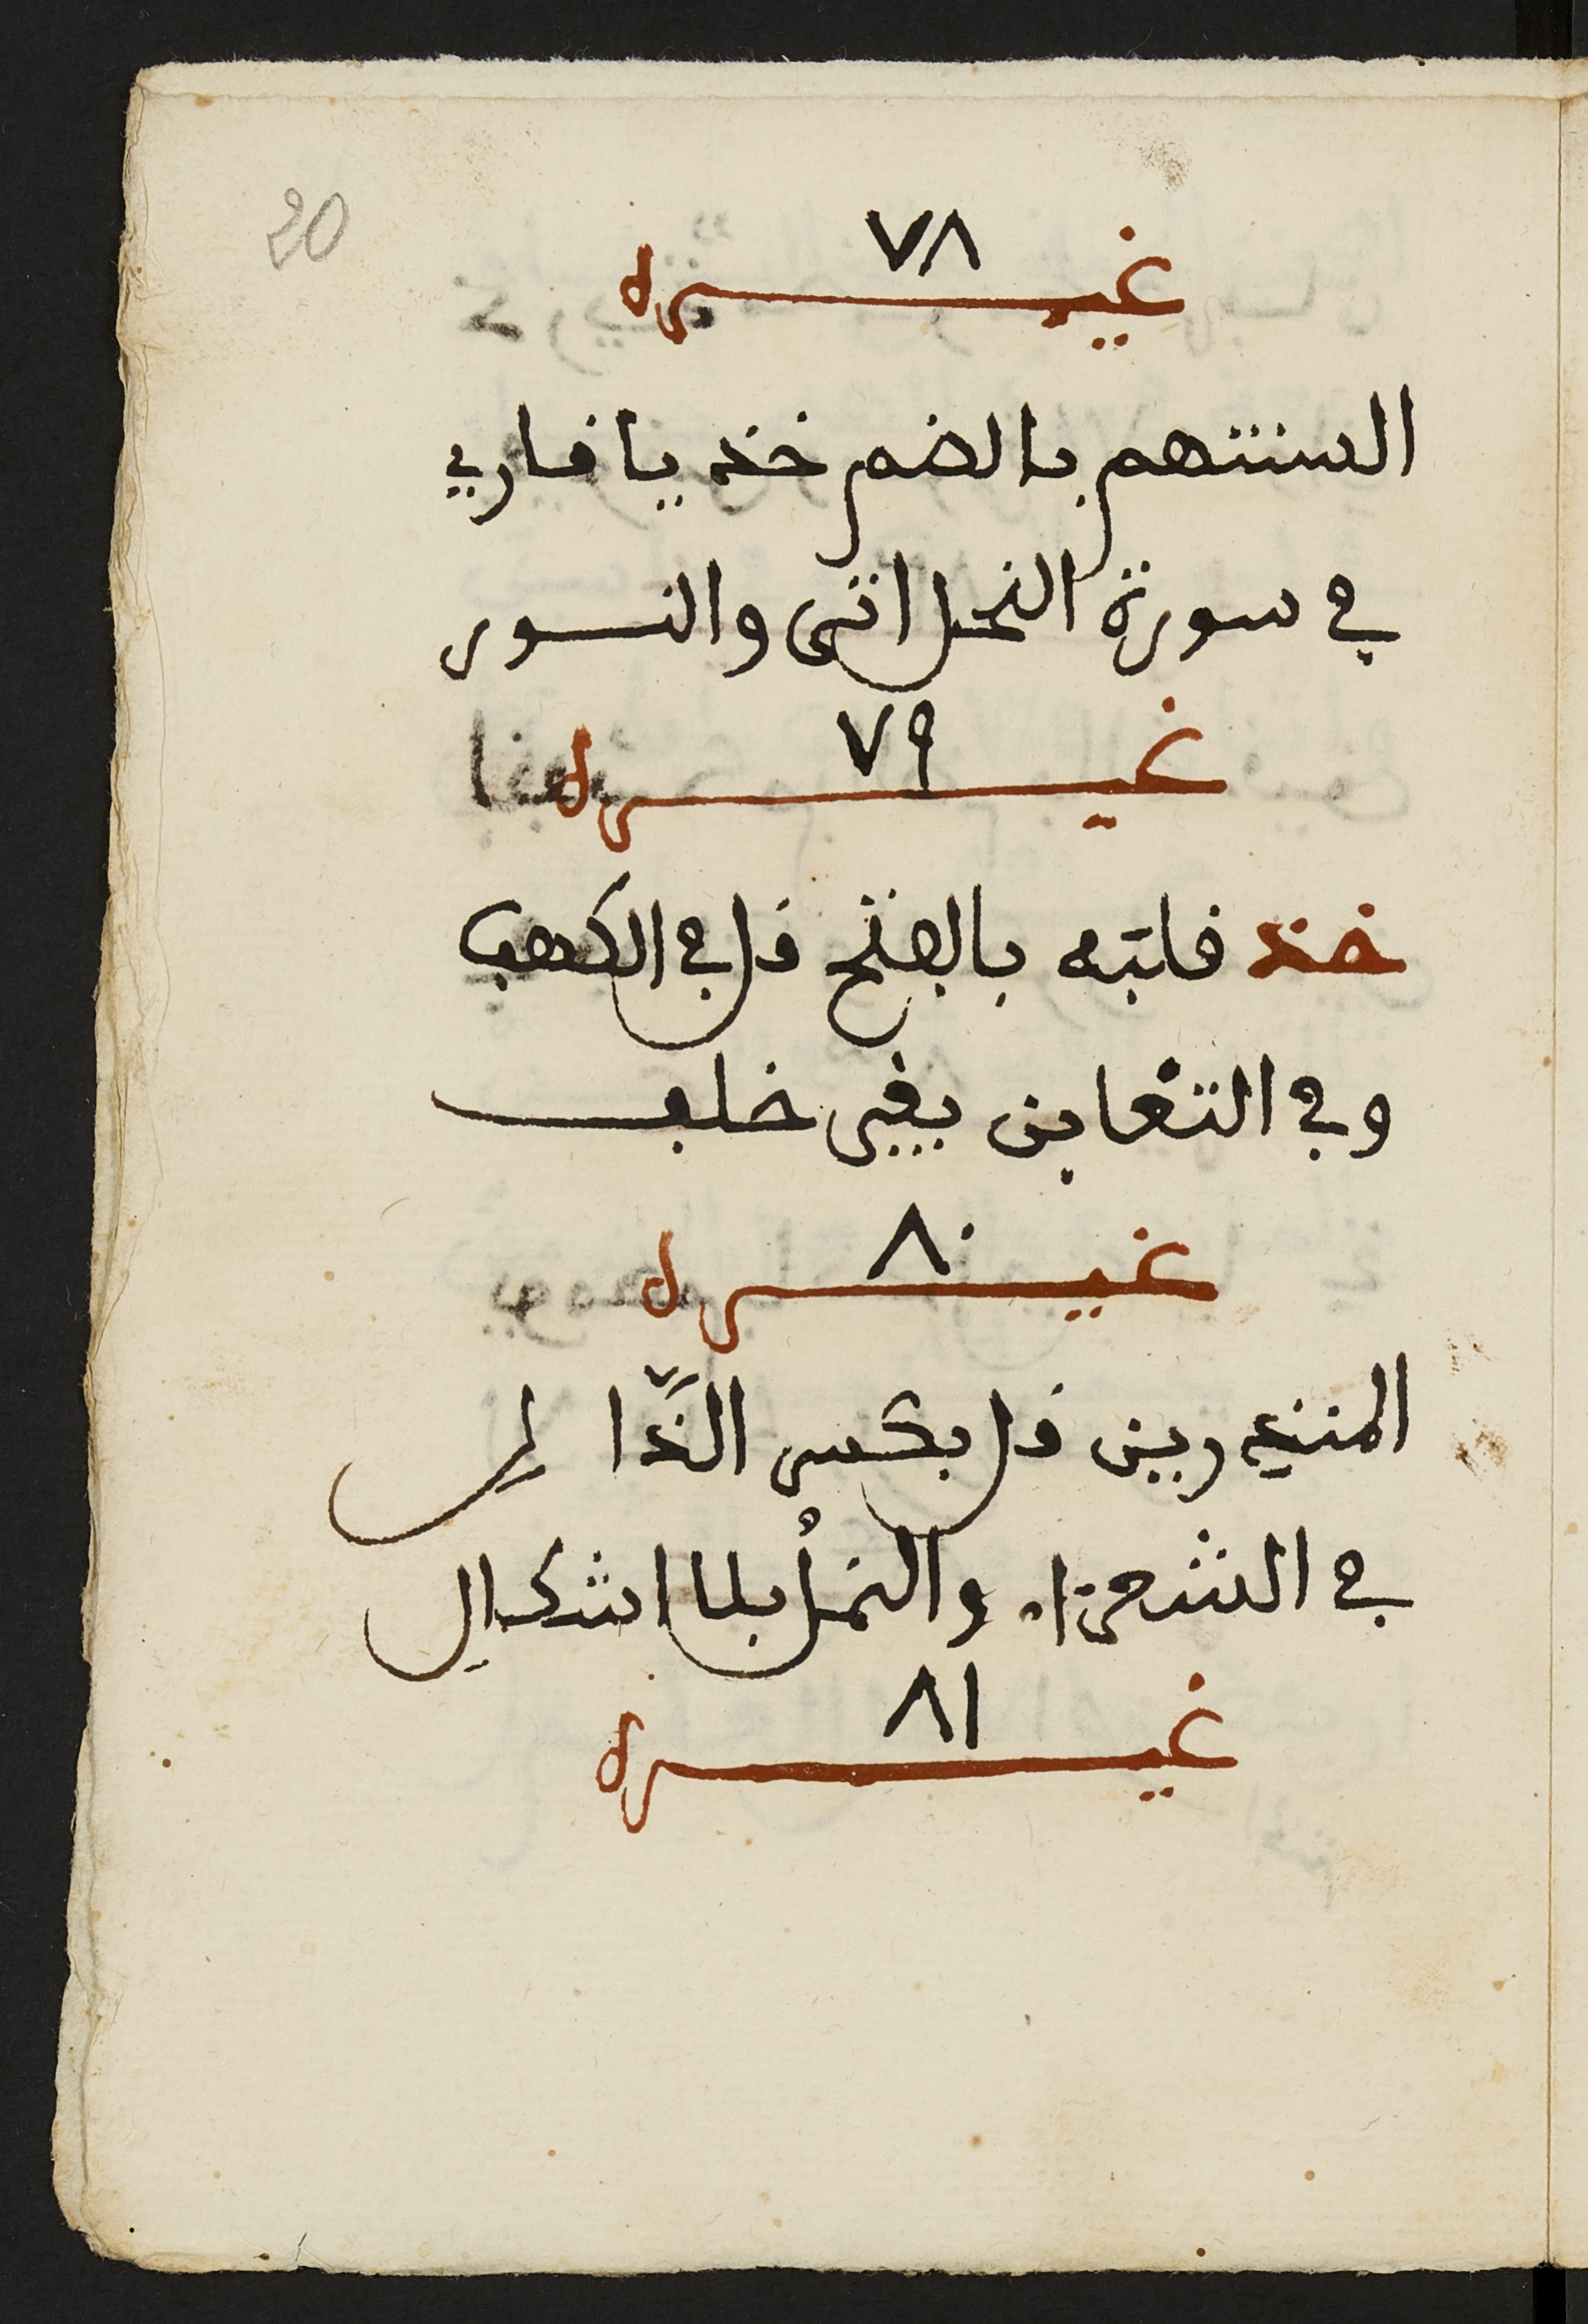 20
٧٨
غيره
السنتهم بالضم خذ يا قاري
في سورة النحل اتى والنور
٧٩
غيره
خذ قلبه بالفتح قل في الكهف
وفي التغابن بغير خلف
٨٠
غيره
المنذرين قل بكسر الذَّال
في الشعرا والنمل بلا اشكال
٨١
غيره